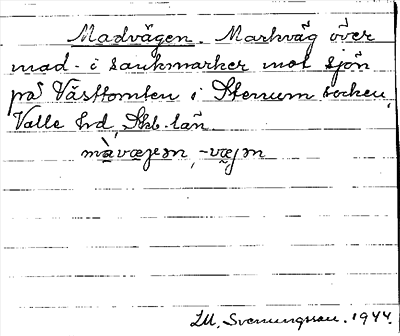 Madvägen. Markväg över
mad - i sankmarker mot sjön
på Västtomten i Stenum socken,
Valle hd, Skb. län.
màvæɡen, -væjn
L.M. Svenungsson. 1944.